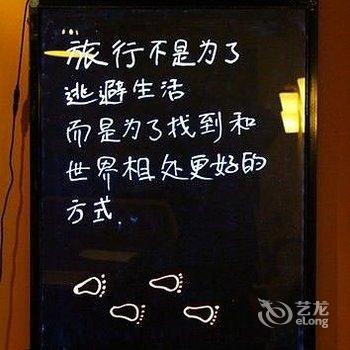 旅行不是为了
逃避生活
而是为了找到和
世界相处更好的
方式.
艺龙
eLong